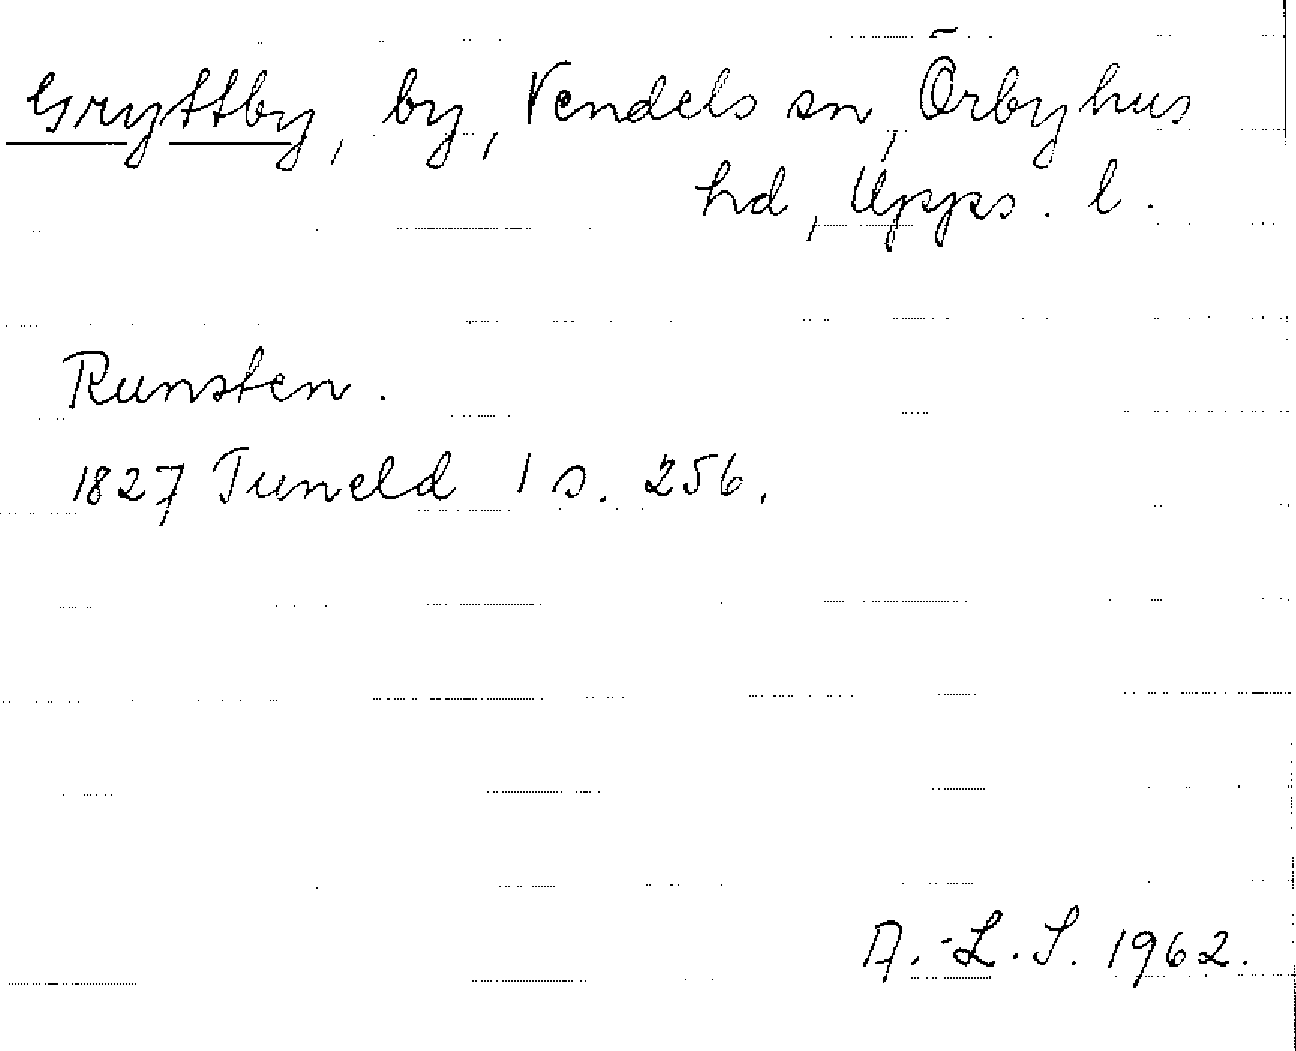 Gryttby, by, Vendels sn, Örbyhus
hd, Upps. l.
Runsten.
1827 Tuneld 1 s. 256.
A.-L.S. 1962.